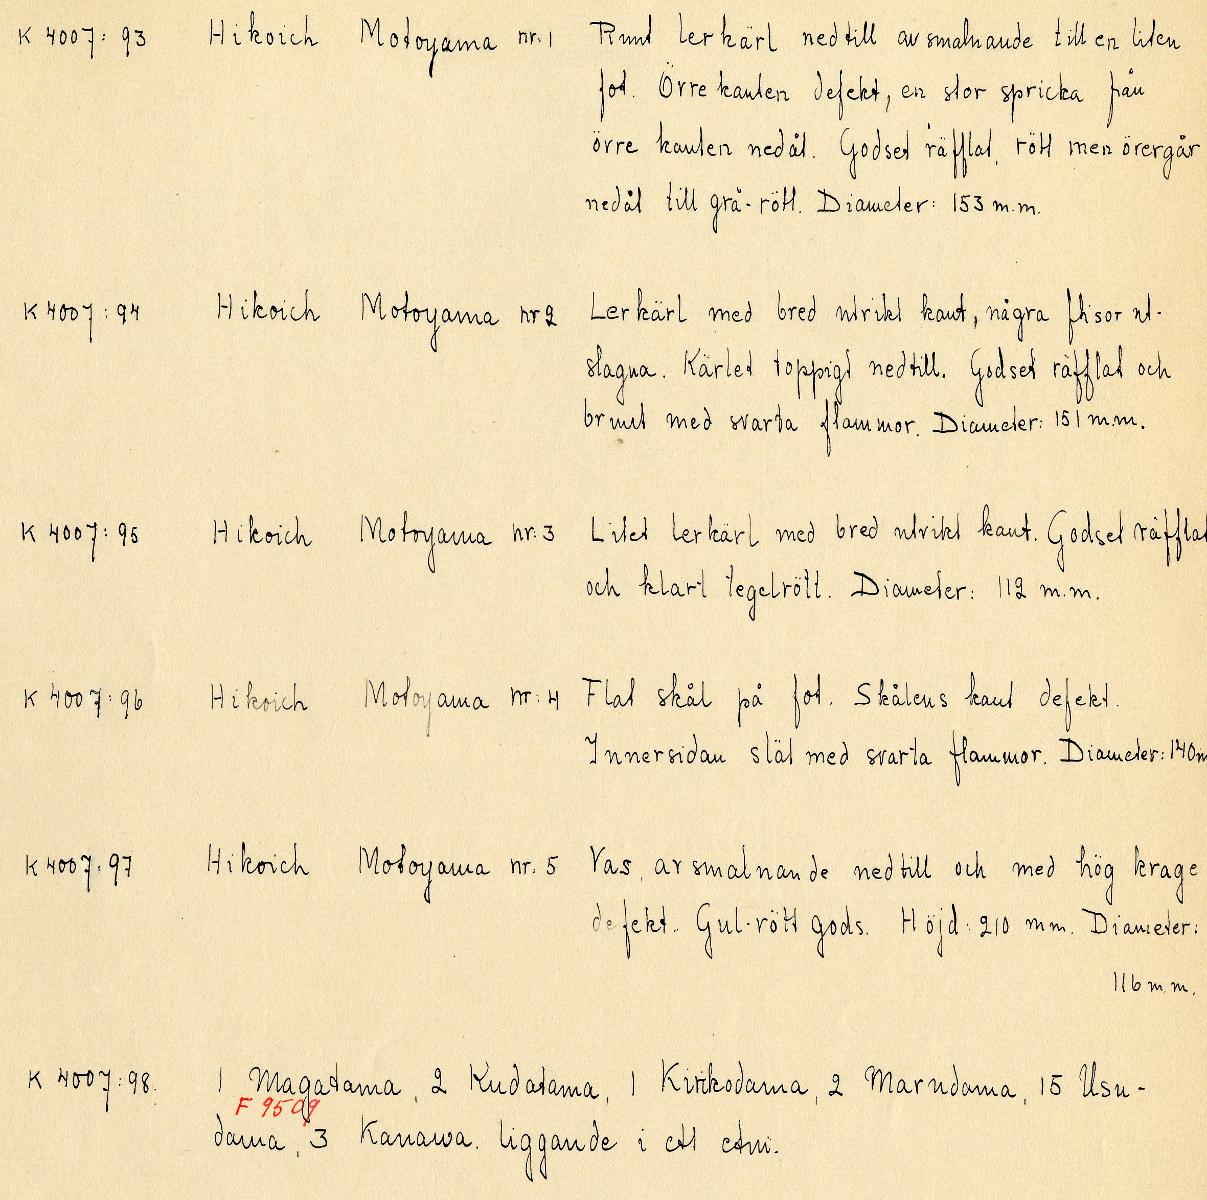 K 4007:93 Hikoich Motoyama nr.1 Runt lerkärl nedtill avsmalnande till en liten
fot. Övre kanten defekt, en stor spricka från
övre kanten nedåt. Godset räfflat, rött men övergår
nedåt till grå-rött. Diameter: 153 m.m.
K 4007:94 Hikoich Motoyama nr 2 Lerkärl med bred utvikt kant, några flisor ut-
slagna. Kärlet toppigt nedtill. Godset räfflat och
brunt med svarta flammor. Diameter: 151 m.m.
K 4007:95 Hikoich Motoyama nr:3 Litet lerkärl med bred utvikt kant. Godset räfflat
och klart tegelrött. Diameter: 112 m.m.
K 4007:96 Hikoich Motoyama nr:4 Flat skål på fot. Skålens kant defekt.
Innersidan slät med svarta flammor. Diameter: 140 m
K 4007:97 Hikoich Motoyama nr. 5 Vas, avsmalnande nedtill och med hög krage
defekt. Gul-rött gods. Höjd: 210 mm. Diameter:
116 m.m.
K 4007:98. 1 Magatama, 2 Kudatama, 1 Kirikodama, 2 Marudama, 15 Usu-
F 9509
dama, 3 Kanawa. liggande i ett etui.